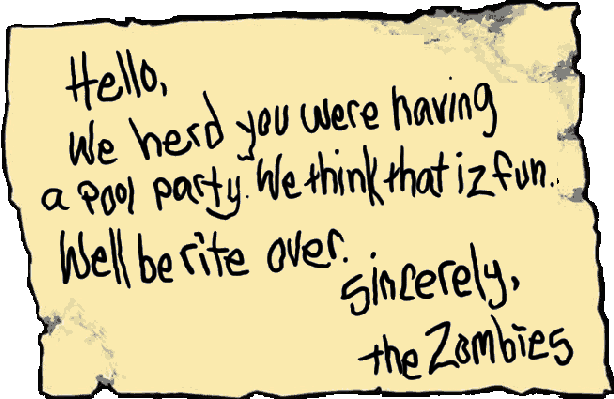 Hello,
We herd you were having
a pool party. We think that iz fun.
Well be rite over.
sincerely,
the Zombies